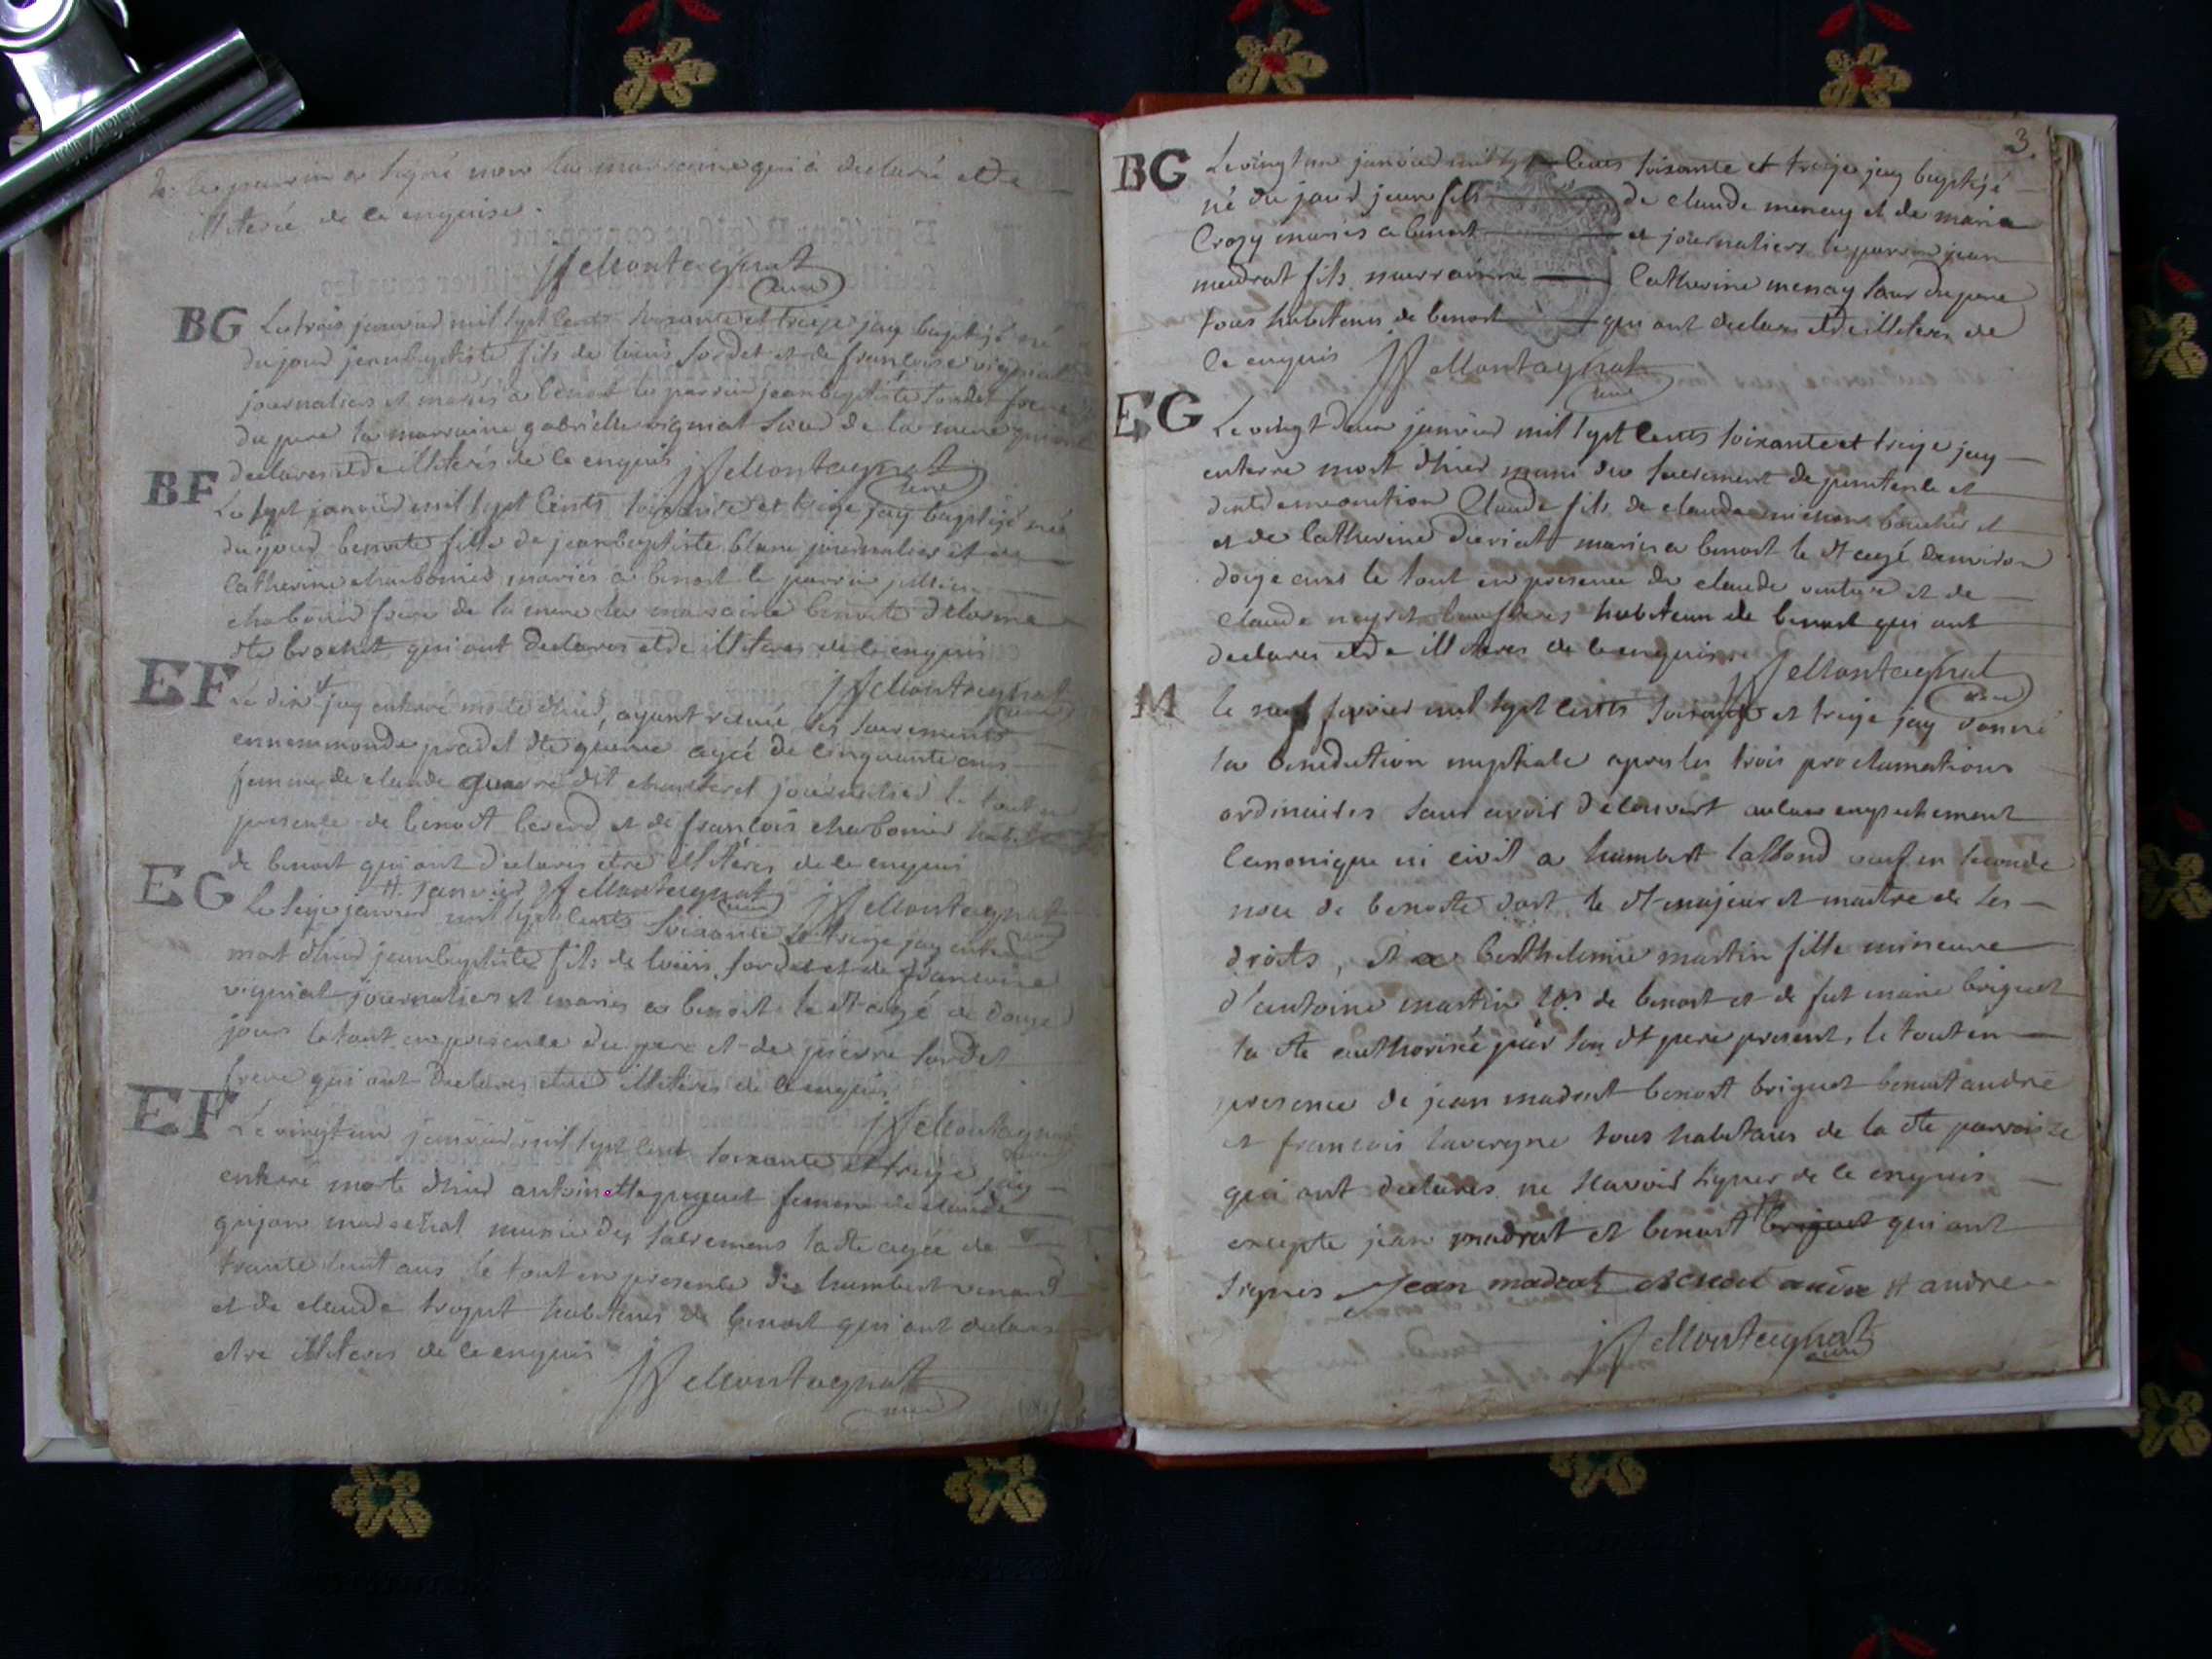 le parrain a signé non la marraine qui a declaré etre
illiterée de ce enquise.
JF Montagnat
curé
BG Le trois janvier mil sept cents soixante et treize jay baptizé né
du jour jean baptiste fils de louis sordet et de francoise vigniat
journaliers et mariés a benost le parrain jean baptiste sordet frere
du pere la marraine gabrielle vigniat sœur de la mere qui ont
declarés etre illiterés de ce enquis JF Montagnat
curé
BF Le sept janvier mil sept cents soixante et treize jay baptizé née
du jour benoite fille de jean baptiste blanc journalier et de
catherine charbonier mariés a benost le parrain
charbonier frere de la mere la marraine benoite delorme
dte brochet qui ont declarés etre illiteres de ce enquis
JF Montagnat
curé
EF Le dix # jay enterré morte d'hier, ayant recue les sacrements
ennemonde pradel dte guerre agée de cinquante ans
femme de claude guerre dit journalier le tout en
presence de benoit et de francois charbonier
de benost qui ont declarés etre illiteres de ce enquis
# janvier JF Montagnat JF Montagnat
curé curé
EG Le seize janvier mil sept cents soixante et treize jay enterré
mort d'hier jean baptiste fils de louis sordet et de francoise
vigniat journaliers et mariés a benost le dt agé de douze
jours le tout en presence du pere et de pierre sordet
frere qui ont declarés etre illiteres de ce enquis
JF Montagnat
curé
EF Le vingt un janvier mil sept cent soixante et treize jay
enterré morte d'hier antoinette guguet femme de claude
gujon marechal munie des sacremens la dte agée de
trante huit ans le tout en presence de humbert venard
et de claude habitans de benost qui ont declarés
etre illiteres de ce enquis
JF Montagnat
curé
3.
BG Le vingt un janvier mil sept cents soixante et treize jay baptizé
né du jour jean fils de claude menay et de marie
Crozy mariés a benost et journaliers le parrain jean
mudrat fils marrainne Catherine menay sœur du pere
tous habitans de benost qui ont declarés etre illiteres de
ce enquis JF Montagnat
curé
EG Le vingt deux janvier mil sept cents soixante et treize jay
enterré mort d'hier muni du sacrement de penitence et
d'extreme onction Claude fils de claude michon boucher et
et de Catherine dieriat mariés a benost le dt agé d'environ
doize ans le tout en presence de claude venture et de
claude habitans de benost qui ont
declarés etre illiteres de ce enquis. JF Montagnat
curé
M le neuf fevrier mil sept cents soixante et treize jay donné
la benediction nuptiale apres les trois proclamations
ordinaires sans avoir decouvert aulcun empechement
Canonique ni civil a humbert lassond veuf en seconde
noce de benoite dort le dt majeur et maitre de ses
droits, et a berthelemie martin fille mineure
d'antoine martin de benost et de fut marie briguet
la dte authorisée par son dt pere present, le tout en
presence de jean madrat benost briguet benoit andré
et francois lavergne tous habitans de la dte parroisse
qui ont declarés ne scavoir signer de ce enquis
excepte jean madrat et benoit # briguet qui ont
signés Jean madrat benoit andre # andre
JF Montagnat
curé